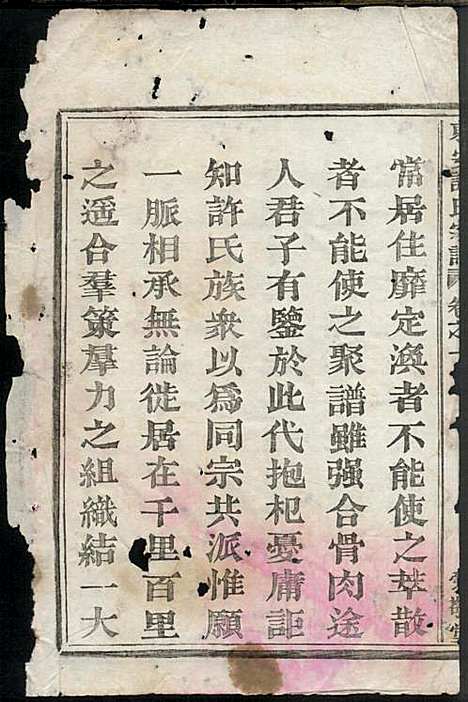 常居住靡定渙者不能使之萃散
者不能使之聚譜雖强合骨肉途
人君子有鑒於此代抱杞憂庸詎
知許氏族衆以爲同宗共派惟願
一脈相承無論徙居在千里百里
之遥合羣策羣力之組織結一大